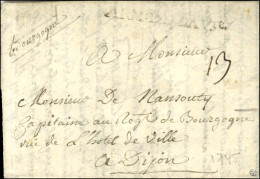 Bourgogne
A Monsieur
13
Monsieur De Nansouty
Capitaine au Reg.t de Bourgogne
rue de L'hotel de Ville
a Dijon